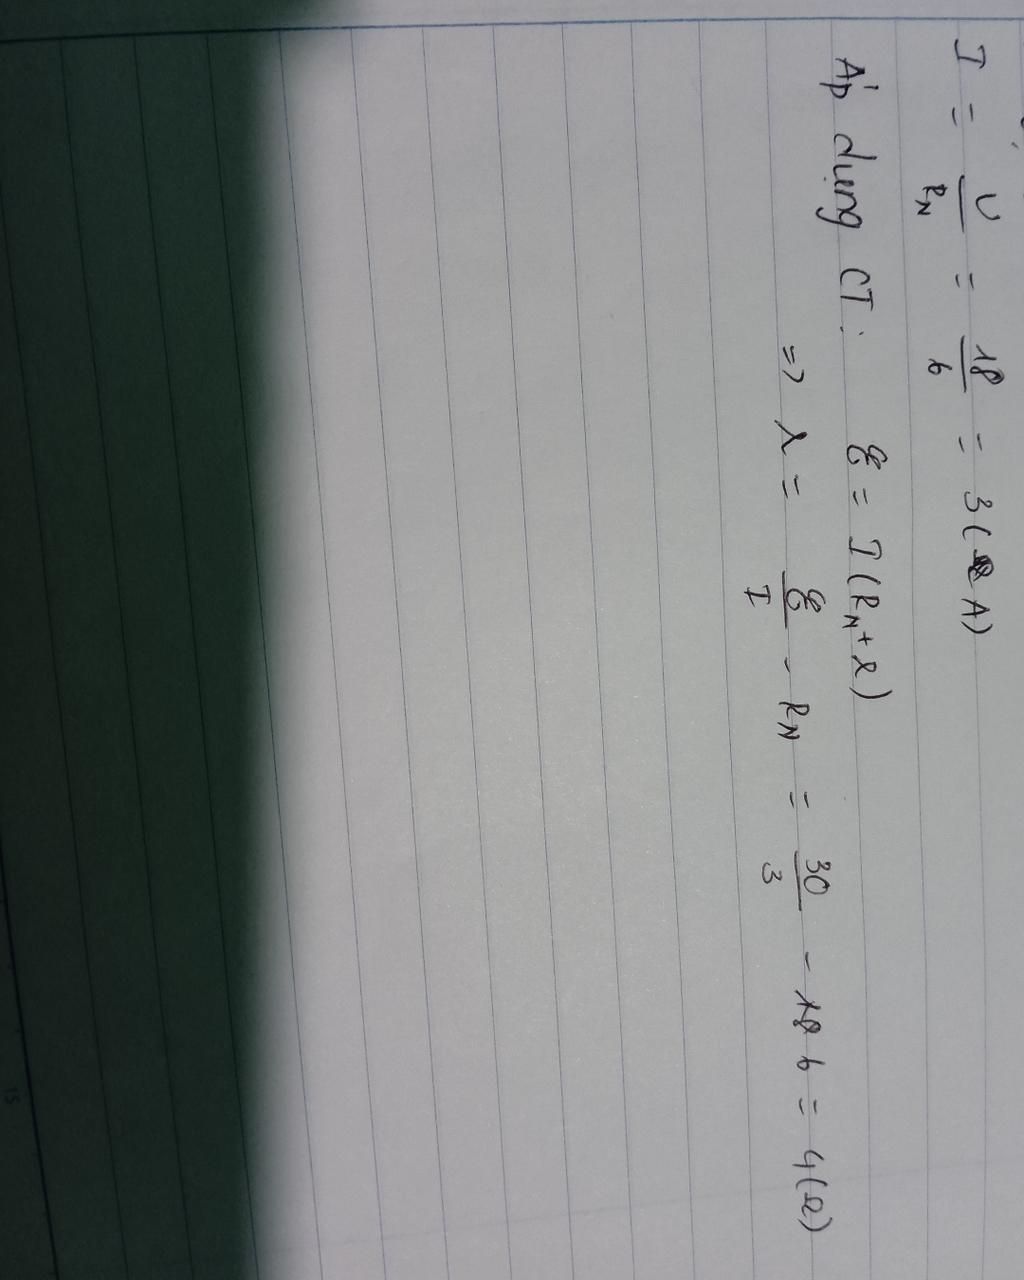 I = U/R_N = 18/6 = 3 (A)
Áp dụng CT: ℰ = I(R_N + r)
=> r = ℰ/I - R_N = 30/3 - 6 = 4 (Ω)